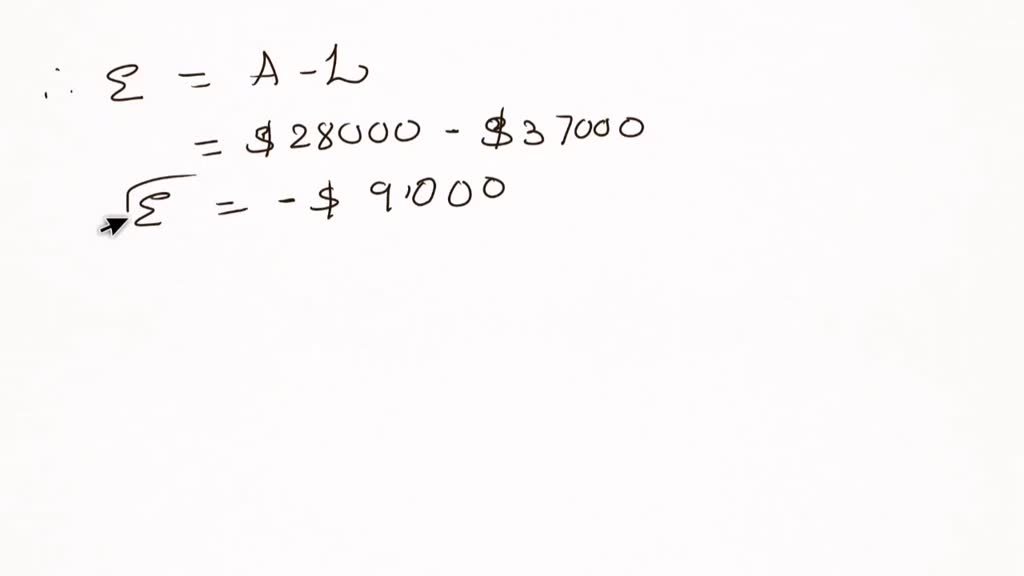 ∴ E = A - L
= $28000 - $37000
E = - $ 9,000